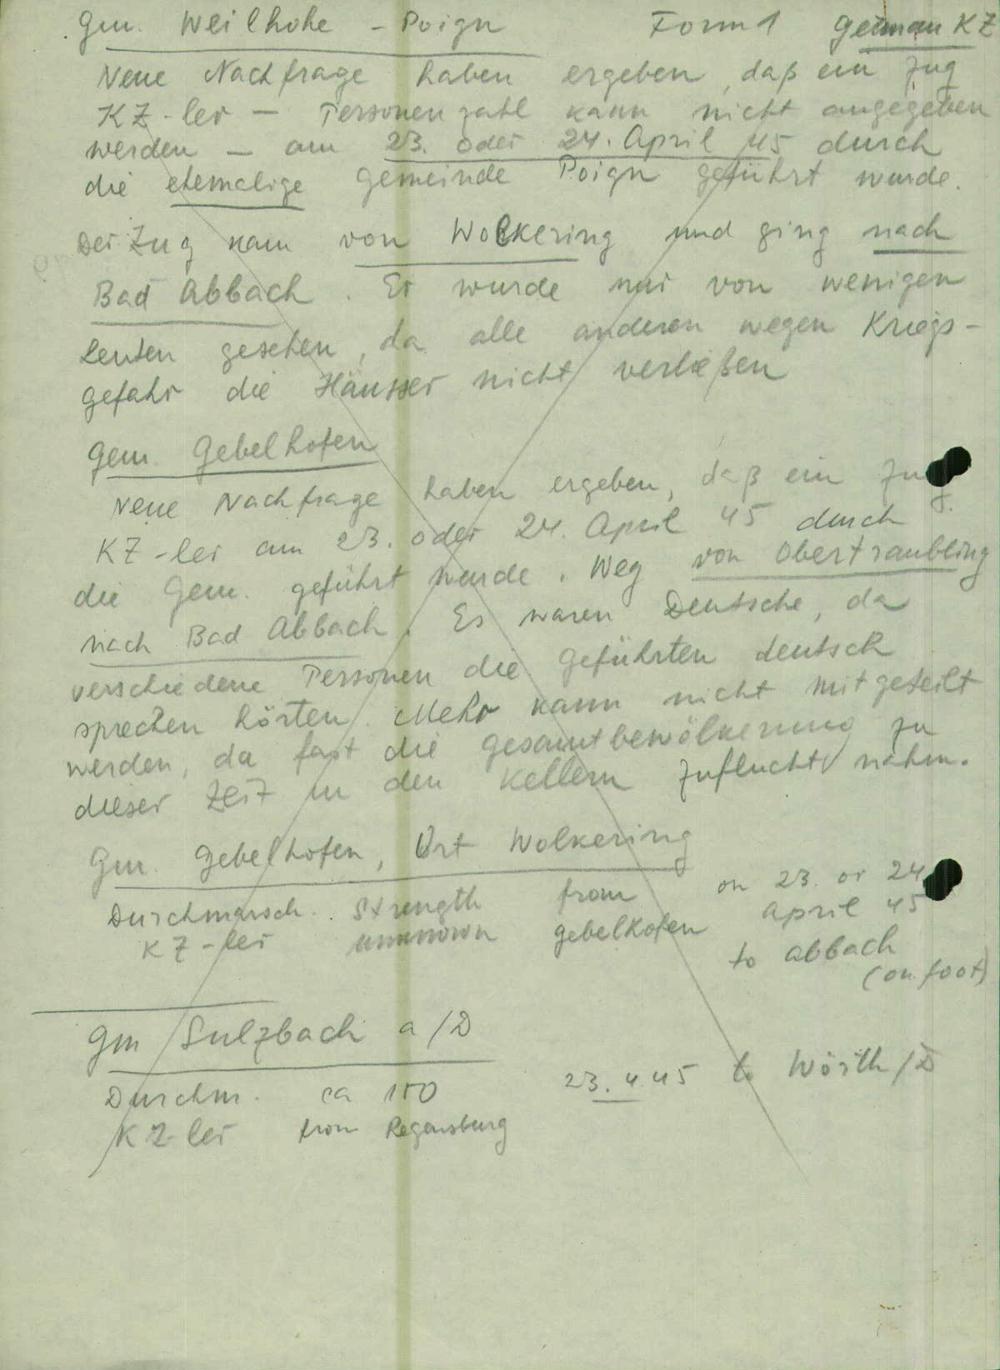 Gm. Weilhohe - Poign Form 1 German KZ
Neue Nachfrage haben ergeben, daß ein Zug
KZ-ler - Personenzahl kann nicht angegeben
werden - am 23. oder 24. April 45 durch
die ehemalige Gemeinde Poign geführt wurde.
Der Zug kam von Wolkering und ging nach
Bad Abbach. Er wurde nur von wenigen
Leuten gesehen, da alle anderen wegen Kriegs-
gefahr die Häusser nicht verließen
Gem. Gebelhofen
Neue Nachfrage haben ergeben, daß ein Zug
KZ-ler am 23. oder 24. April 45 durch
die Gem. geführt wurde. Weg von Obertraubling
nach Bad Abbach. Es waren Deutsche, da
verschiedene Personen die geführten deutsch
sprechen hörten. Mehr kann nicht mitgeteilt
werden, da fast die gesamtbevölkerung zu
dieser Zeit in den Kellern Zuflucht nahm.
Gm. Gebelhofen, Ort Wolkering
Durchmarsch. Strength from on 23. or 24
KZ-ler unknown gebelkofen April 45
to abbach
(on foot)
Gm Sulzbach a/D
Durchm. ca 150 23.4.45 to Wörth/D
KZ-ler from Regensburg